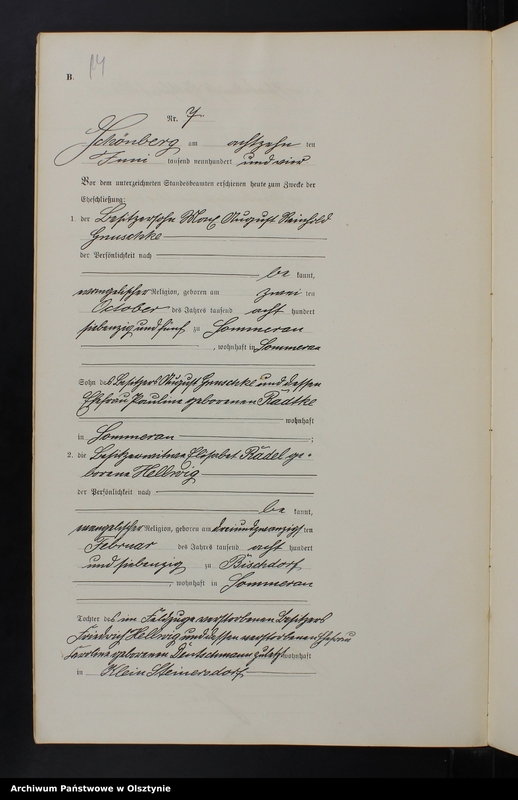 14
B.
Nr. 7.
Schönberg am achtzehn ten
Juni tausend neunhundert und vier
Vor dem unterzeichneten Standesbeamten erschienen heute zum Zwecke der
Eheschließung:
1. der Besitzersohn Max August Reinhold
Gnuschke
der Persönlichkeit nach
be kannt,
evangelischer Religion, geboren am zwei ten
October des Jahres tausend acht hundert
siebenzig und fünf zu Sommerau
, wohnhaft in Sommerau
Sohn des Besitzers August Gnuschke und dessen
Ehefrau Pauline geborenen Radtke
wohnhaft
in Sommerau ;
2. die Besitzerwitwe Elisabet Rädel ge-
borene Hellwig
der Persönlichkeit nach
be kannt,
evangelischer Religion, geboren am dreiundzwanzigs ten
Februar des Jahres tausend acht hundert
und siebenzig zu Bischdorf
, wohnhaft in Sommerau
Tochter des im Feldzuge verstorbenen Besitzers
Friedrich Hellwig und dessen verstorbenen Ehefrau
Karoline geborenen Deutschmann zuletzt wohnhaft
in Klein Steinersdorf
Archiwum Państwowe w Olsztynie